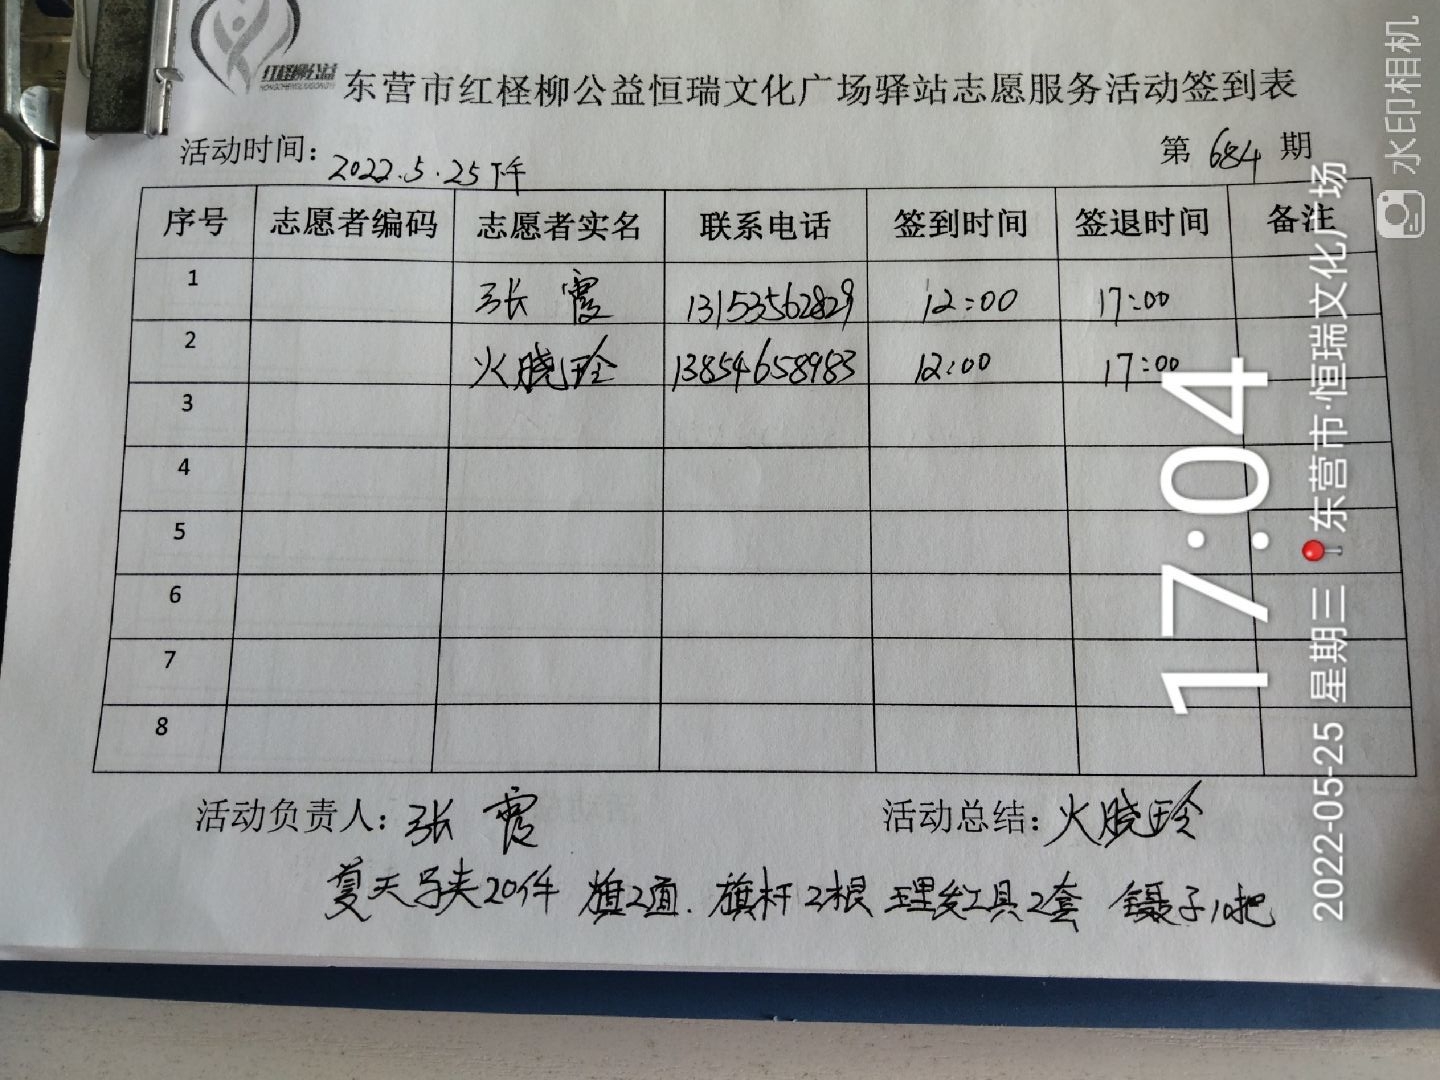 红柽柳公益
HONGCHENGLIUGONGYI
东营市红柽柳公益恒瑞文化广场驿站志愿服务活动签到表
活动时间：2022.5.25下午 第 684 期
序号 志愿者编码 志愿者实名 联系电话 签到时间 签退时间 备注
1 张霞 13153562829 12:00 17:00
2 火晓玲 13854658983 12:00 17:00
3
4
5
6
7
8
活动负责人：张霞 活动总结：火晓玲
夏天马夹20件 旗2面. 旗杆2根 理发工具2套 镊子10把
水印相机
17:04
2022-05-25 星期三 东营市·恒瑞文化广场